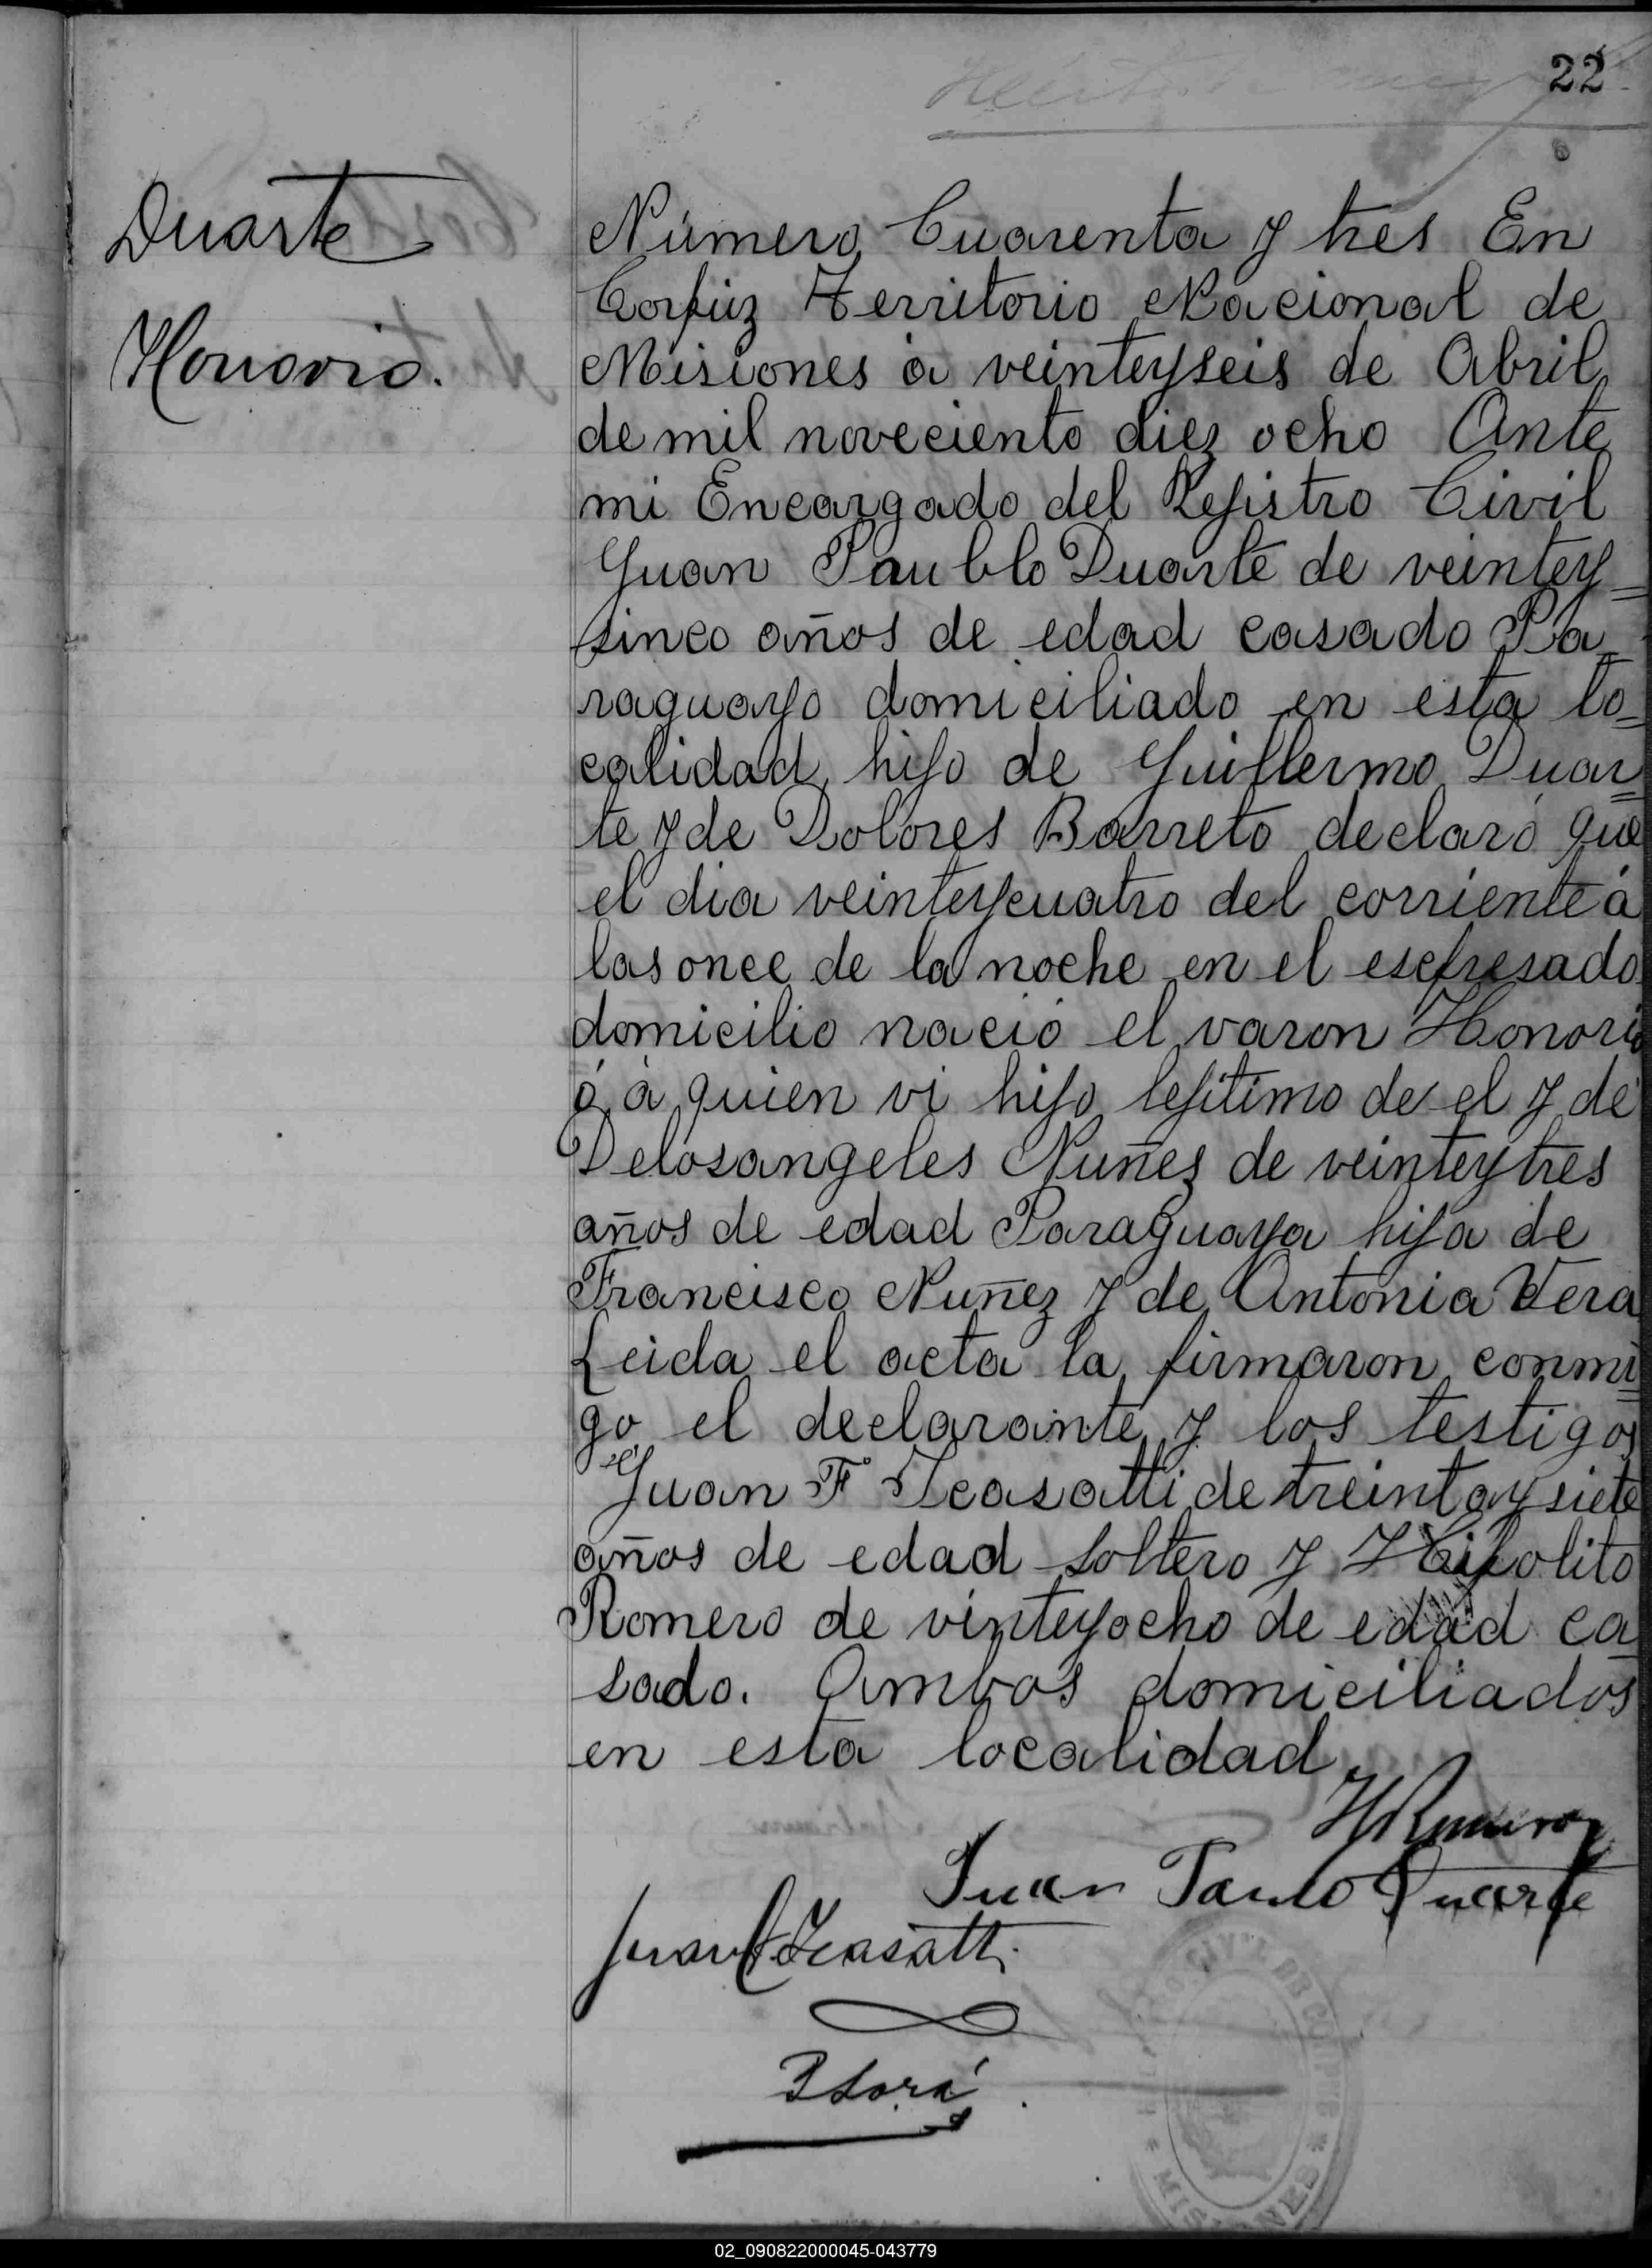 22
Duarte
Honorio.
Número Cuarenta y tres En
Corpuz Territorio Nacional de
Misiones á veinteyseis de Abril
de mil noveciento diez ocho Ante
mi Encargado del Rejistro Civil
Juan Paublo Duarte de veintey=
sinco años de edad casado Pa=
raguayo domiciliado en esta lo=
calidad hijo de Guillermo Duar=
te y de Dolores Barreto declaró que
el dia veinteycuatro del corriente á
las once de la noche en el escpresado
domicilio nació el varon Honori
ó á quien vi hijo lejítimo de el y de
Delosangeles Nuñez de veinteytres
años de edad Paraguaya hija de
Francisco Nuñez y de Antonia Vera
Leida el acta la firmaron conmi=
go el declarante y los testigos
Juan F. Icasatti de treintaysiete
años de edad soltero y Hipolito
Romero de vinteyocho de edad ca
sado. Ambos domiciliados
en esta localidad.
HRomero
Juan Paulo Duarte
Juan F Icasatti
CIVIL DE CORPUS
MISIONES
02_090822000045-043779